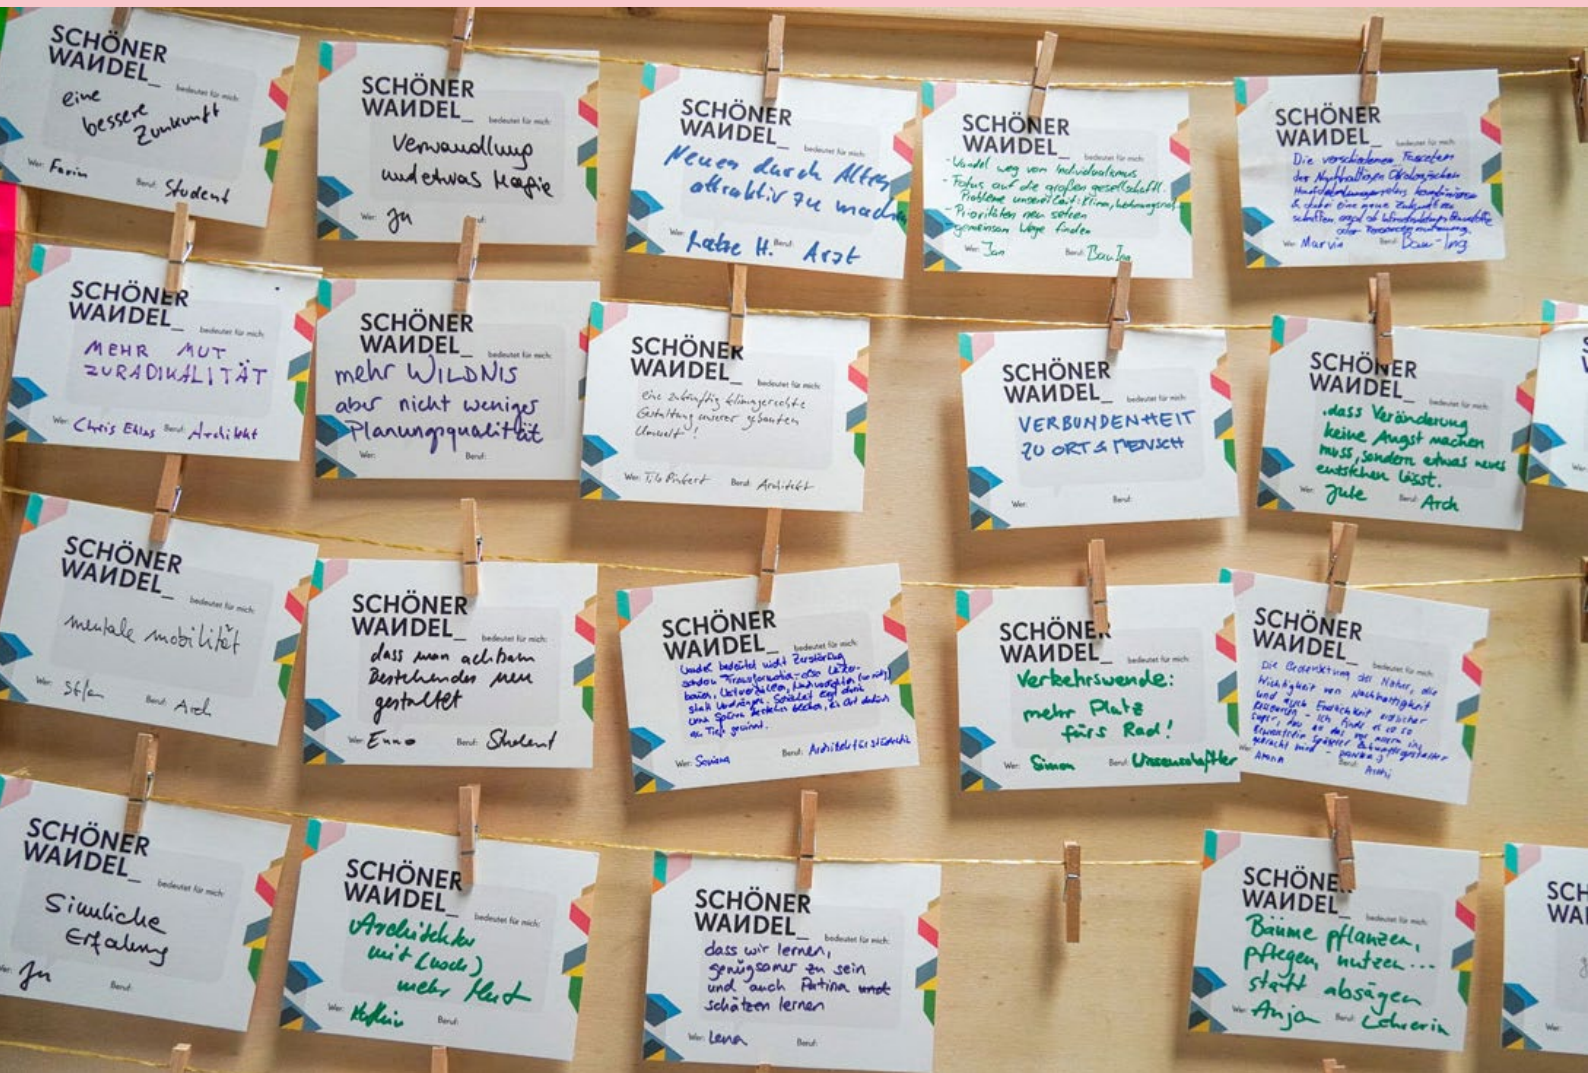 SCHÖNER
WANDEL_
bedeutet für mich:
eine
bessere
Zunkunft
Wer: Farin
Beruf: Student
SCHÖNER
WANDEL_
bedeutet für mich:
Verwandlung
und etwas Magie
Wer: Ju
SCHÖNER
WANDEL_
bedeutet für mich:
Neues durch Altes
attraktiv zu machen
H. Beruf: Arzt
SCHÖNER
WANDEL_
bedeutet für mich:
- Wandel weg von Individualismus
- Fokus auf die großen gesellschaftl.
Probleme unserer Zeit: Klima, Wohnungsnot
- Prioritäten neu setzen
- gemeinsam Wege finden
Wer: Jan
Beruf: BauIng
SCHÖNER
WANDEL_
bedeutet für mich:
Die verschiedenen Facetten
der Nachhaltigen Ökologischen
& dabei eine neue
schaffen
Wer: Marvin
Beruf: Bau-Ing
SCHÖNER
WANDEL_
bedeutet für mich:
MEHR MUT
ZU RADIKALITÄT
Wer: Chris Ehlas Beruf: Architekt
SCHÖNER
WANDEL_
bedeutet für mich:
mehr WILDNIS
aber nicht weniger
Planungsqualität
Wer:
Beruf:
SCHÖNER
WANDEL_
bedeutet für mich:
eine zukünftig klimagerechte
Gestaltung unserer gebauten
Umwelt!
Wer: Tilo
Beruf: Architekt
SCHÖNER
WANDEL_
bedeutet für mich:
VERBUNDENHEIT
ZU ORT & MENSCH
Wer:
Beruf:
SCHÖNER
WANDEL_
bedeutet für mich:
.dass Veränderung
keine Angst machen
muss, sondern etwas neues
entstehen lässt.
Wer: Jule
Beruf: Arch
SCHÖNER
WANDEL_
bedeutet für mich:
mentale mobilität
Wer: Stefan
Beruf: Arch
SCHÖNER
WANDEL_
bedeutet für mich:
dass man achtsam
Bestehendes neu
gestaltet
Wer: Enno
Beruf: Student
SCHÖNER
WANDEL_
bedeutet für mich:
Wandel bedeutet nicht Zerstörung
sondern Transformation - also
statt
an Tiefe gewinnt.
Wer:
Beruf:
SCHÖNER
WANDEL_
bedeutet für mich:
Verkehrswende:
mehr Platz
fürs Rad!
Wer: Simon
Beruf: Wissenschaftler
SCHÖNER
WANDEL_
bedeutet für mich:
Die der Natur, die
Wichtigkeit von Nachhaltigkeit
und auch
- Ich finde es so
gebracht wird
Beruf:
SCHÖNER
WANDEL_
bedeutet für mich:
Sinnliche
Erfahrung
Wer: Ju
Beruf:
SCHÖNER
WANDEL_
bedeutet für mich:
Architektur
mit (noch)
mehr Mut
Wer:
Beruf:
SCHÖNER
WANDEL_
bedeutet für mich:
dass wir lernen,
genügsamer zu sein
und auch Patina und
schätzen lernen
Wer: Lena
Beruf:
SCHÖNER
WANDEL_
bedeutet für mich:
Bäume pflanzen,
pflegen, nutzen...
statt absägen
Wer: Anja
Beruf: Lehrerin
SCH
WA
Wer: